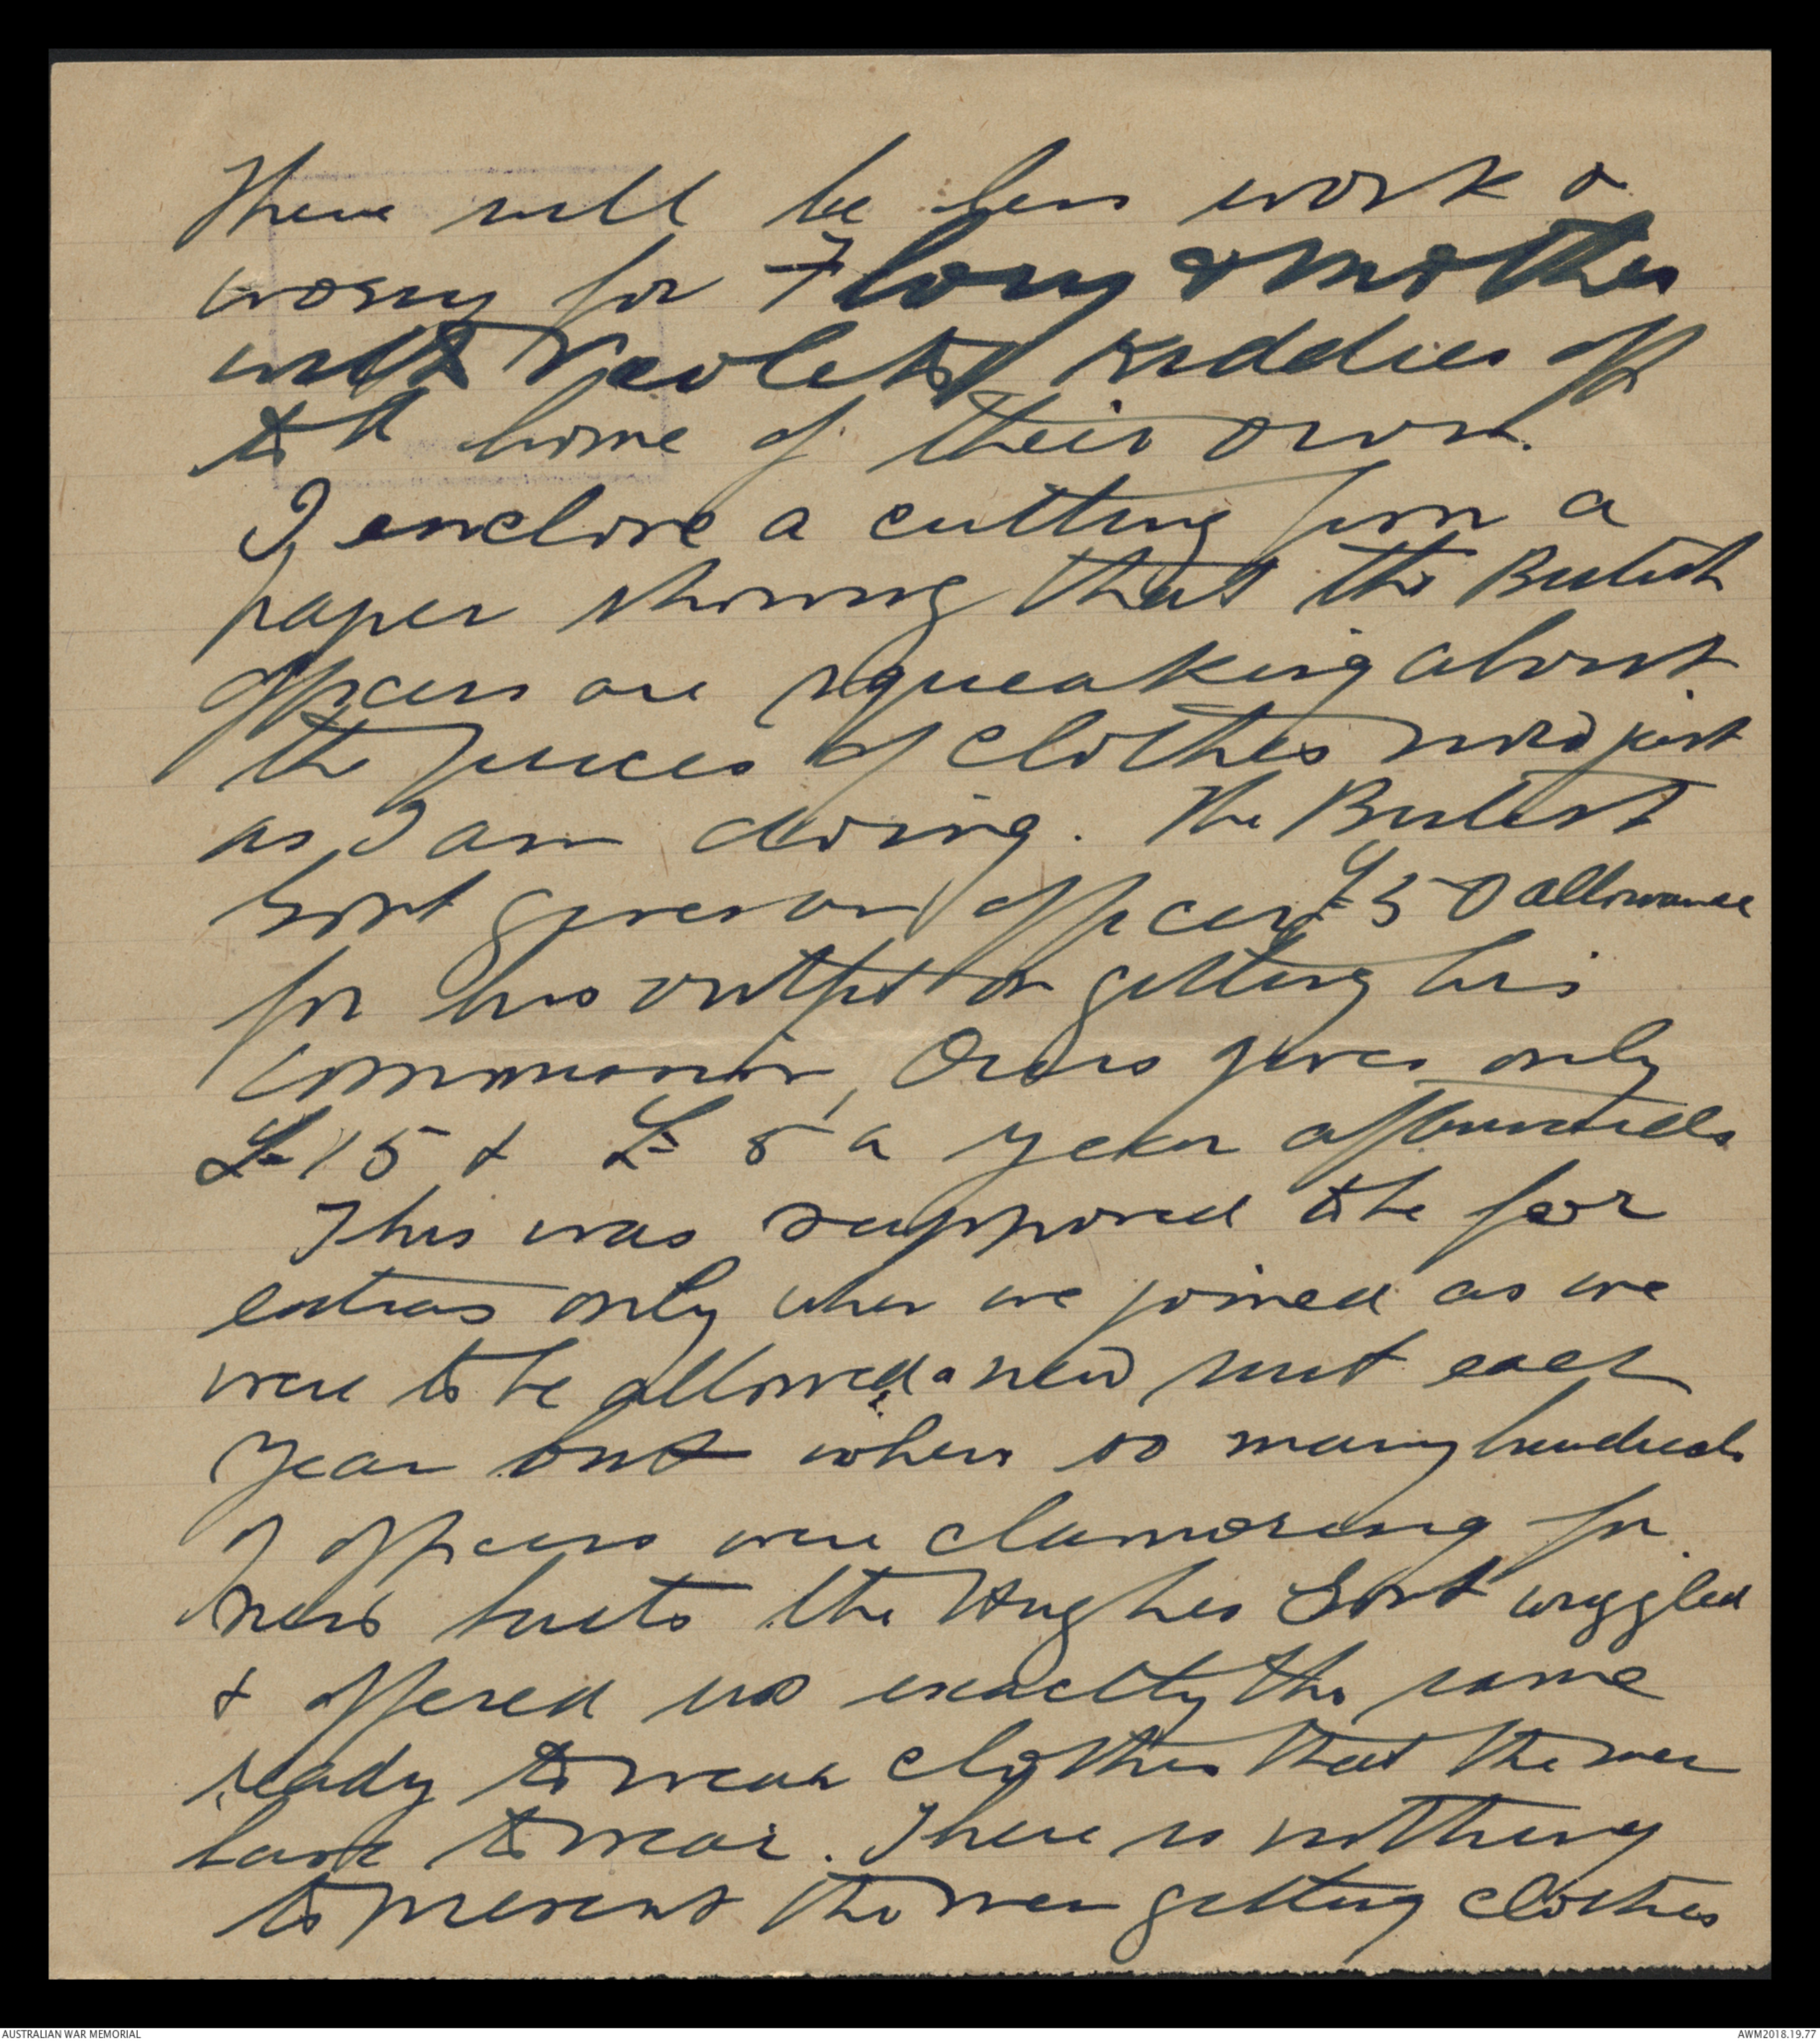 There will be less work &
worry for Flory & Mother
with Violet & kiddies off
to a home of their own.
I enclose a cutting from a
paper showing that the British
officers are squeaking about
the prices of clothes now just
as I am doing. The British
Govt gives an officer £50 allowance
for his outfit on getting his
commission, Ours gives only
£15 & £5 a year afterwards
This was supposed to be for
extras only when we joined as we
were to be allowed a new suit each
year but when so many hundreds
of officers were clamoring for
new suits the Hughes Govt wriggled
& offered us exactly the same
ready to wear clothes that the men
have to wear. There is nothing
to prevent the men getting clothes
AUSTRALIAN WAR MEMORIAL
AWM2018.19.77